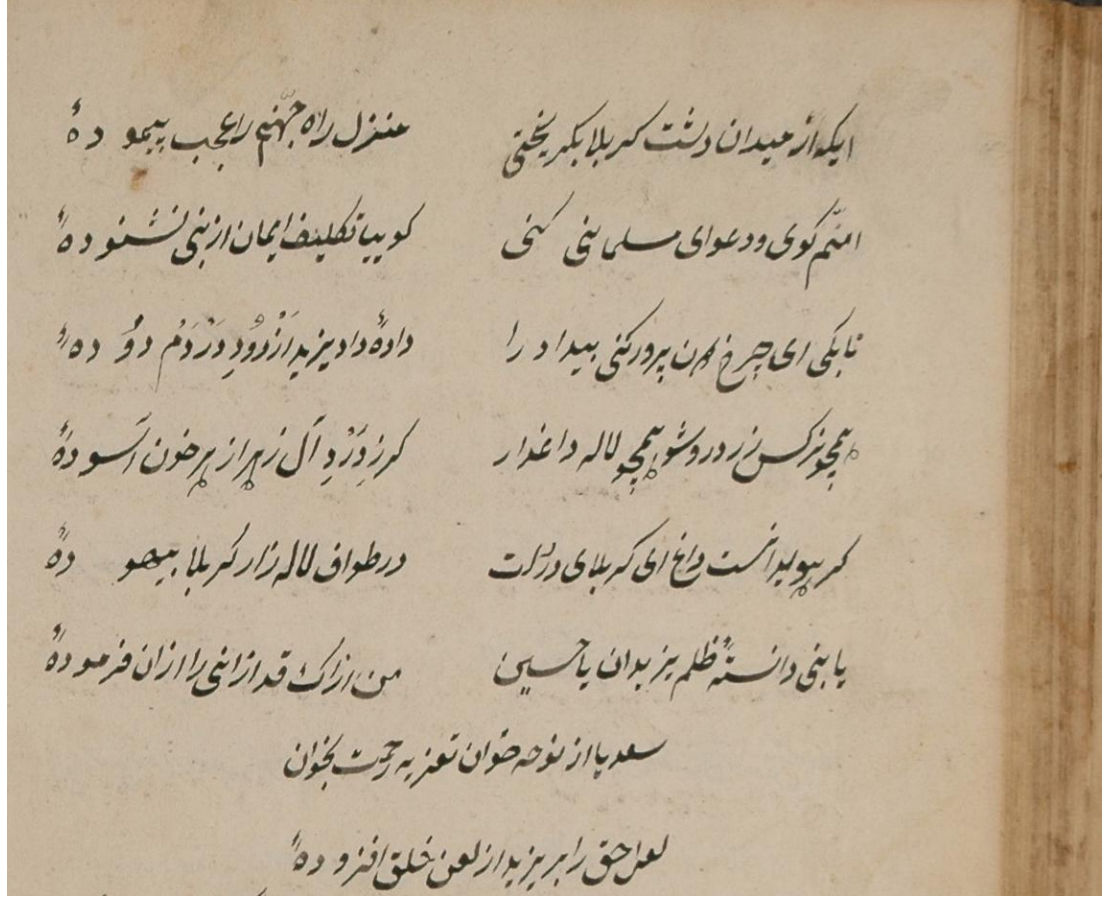 ایکه از میدان دشت کربلا بکریختی منزل راه جهّنم را عجب پیمو دهٔ
امتّم کوی و دعوای مسلمانی کنی کوییا تکلیف ایمان از نبی نشنو دهٔ
تابکی ای چرخ پرورکنی بیداد را دادهٔ داد یزید از دُودِ دَرْدَم دوُ دهٔ
همچو نرکس زرد روشو همچو لاله داغدار کرز دَرْدِ آل زهرا از خون آسودهٔ
کر هویداست داغ ای کربلای در دلت در طواف لاله زار کربلا بیهو دهٔ
یا بنی دانستهٔ ظلم یزیدان یا حسین من از انی را ارزان فرمودهٔ
سعدیا از نوحه خوان تعزیه رحمت بخوان
لعل حق را بر یزید از لعن خلق افزودهٔ